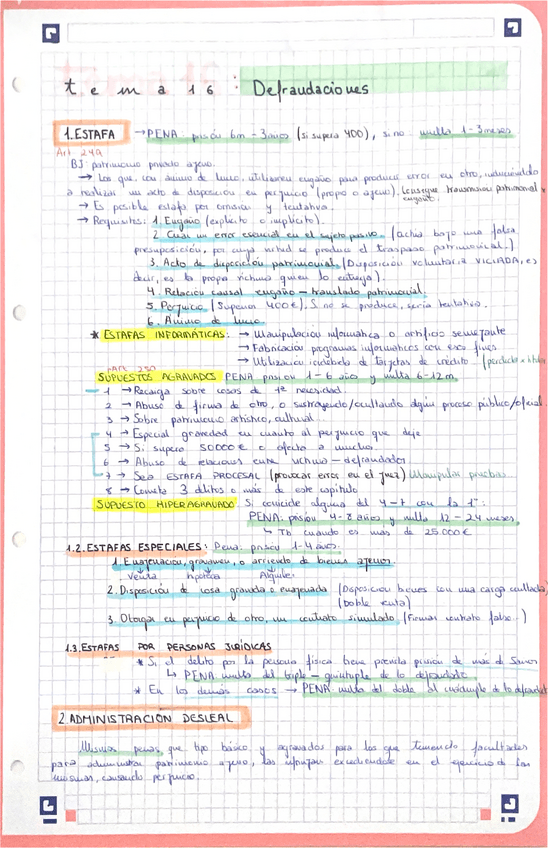 tema 16: Defraudaciones
1. ESTAFA → PENA: prisión 6m - 3 años (si supera 400), si no multa 1-3 meses
Art 249
BJ: patrimonio privado ajeno.
→ Los que, con ánimo de lucro, utilizaren engaño para producir error en otro, induciéndolo
a realizar un acto de disposición en perjuicio (propio o ajeno). Consigue transmisión patrimonial x
engaño.
→ Es posible estafa por omisión y tentativa.
→ Requisitos: 1. Engaño (explícito o implícito).
2. Cuasi un error esencial en el sujeto pasivo. (actúa bajo una falsa
presuposición, por cuya virtud se produce el traspaso patrimonial.)
3. Acto de disposición patrimonial. (Disposición voluntaria VICIADA, es
decir, es la propia víctima quien lo entrega).
4. Relación causal engaño - traslado patrimonial.
5. Perjuicio (Superior 400€). Si no se produce, sería tentativa.
6. Ánimo de lucro.
* ESTAFAS INFORMÁTICAS: → Manipulación informática o artificio semejante
→ Fabricación programas informáticos con esos fines
→ Utilización indebida de tarjetas de crédito
Art 250
SUPUESTOS AGRAVADOS PENA prisión 1-6 año y multa 6-12 m.
1 → Recaiga sobre cosas de 1ª necesidad
2 → Abuso de firma de otro, o sustrayendo/ocultando algún proceso público/oficial.
3 → Sobre patrimonio artístico, cultural
4 → Especial gravedad en cuanto al perjuicio que deje
5 → Si supera 50000€ o afecta a muchos.
6 → Abuso de relaciones entre víctima - defraudador
7 → Sea ESTAFA PROCESAL (provocar error en el juez) Manipular pruebas.
8 → Cometa 3 delitos o más de este capítulo
SUPUESTO HIPERAGRAVADO Si coincide alguna del 4-7 con la 1ª:
PENA: prisión 4-8 años y multa 12-24 meses.
↳ Tb cuando es más de 25.000€
1.2. ESTAFAS ESPECIALES: Pena: prisión 1-4 años.
1. Enajenación, gravamen, o arriendo de bienes ajenos.
Venta hipoteca Alquiler
2. Disposición de cosa gravada o enajenada (Disposición bienes con una carga ocultada)
(Doble venta)
3. Otorgar en perjuicio de otro, un contrato simulado (Firmar contrato falso.)
1.3. ESTAFAS POR PERSONAS JURÍDICAS
* Si el delito por la persona física tiene prevista prisión de más de 5 años
↳ PENA multa del triple - quíntuple de lo defraudado.
* En los demás casos → PENA multa del doble al cuádruple de lo defraudado
2. ADMINISTRACIÓN DESLEAL
Mismas penas, que tipo básico y agravados para los que teniendo facultades
para administrar patrimonio ajeno, las infrinjan excediéndose en el ejercicio de las
mismas, causando perjuicio.